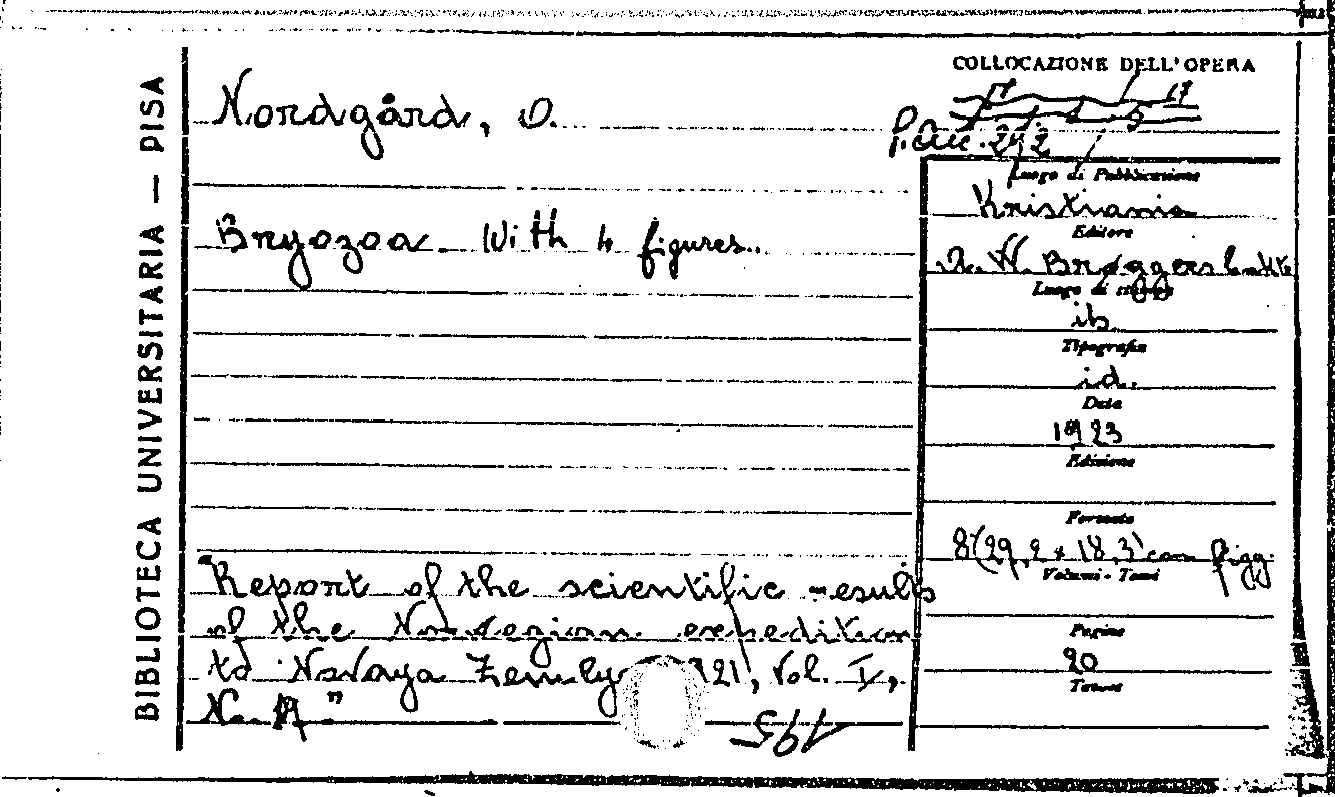 BIBLIOTECA UNIVERSITARIA — PISA
Nordgård, O.
Bryozoa. With 4 figures.
"Report of the scientific results
of the Norvegian expedition
to Novaya Zemlya 1921, Vol. I,
N. 17"
195
COLLOCAZIONE DELL'OPERA
P. 242
Luogo di Pubblicazione
Kristiania
Editore
A. W. Brøggers
Luogo di stampa
ib.
Tipografia
id.
Data
1923
Edizione
Formato
8°(29,2 x 18,3) con figg.
Volumi - Tomi
Pagine
20
Tavole